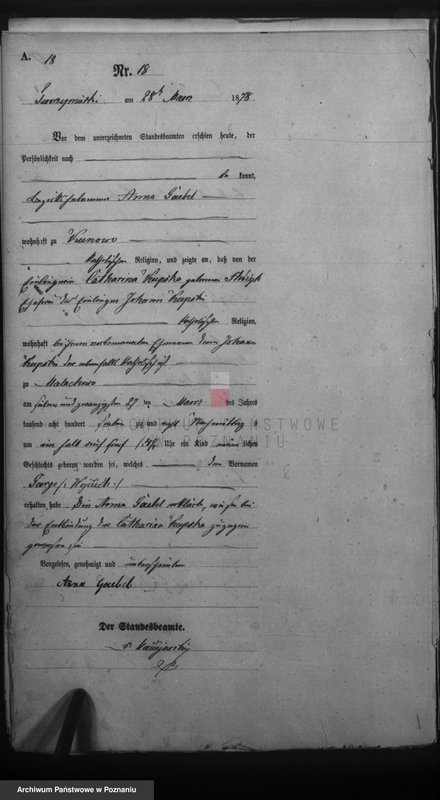 A.
18
Nr. 18
am 28 ten März 1878
Vor dem unterzeichneten Standesbeamten erschien heute, der
Persönlichkeit nach
be kannt,
Anna Gaebel
wohnhaft zu Kunowo
katholischer Religion, und zeigte an, daß von der
Catharina Kupska geborenen
Ehefrau des Johann Kupski
katholischer Religion,
wohnhaft bei ihrem Ehemanne dem Johann
zu Malachowo
am sieben und zwanzigsten 27 ten März des Jahres
tausend acht hundert sieben zig und acht Nachmittag
um ein halb fünf Uhr ein Kind männ lichen
Geschlechts geboren worden sei, welches den Vornamen
George
erhalten habe. Die Anna Gaebel erklärte, daß sie bei
der Entbindung der Catharina Kupska zugegen
gewesen sei
Vorgelesen, genehmigt und unterschrieben
Anna Gaebel
Der Standesbeamte.
ARCHIWUM PAŃSTWOWE
W POZNANIU
Archiwum Państwowe w Poznaniu